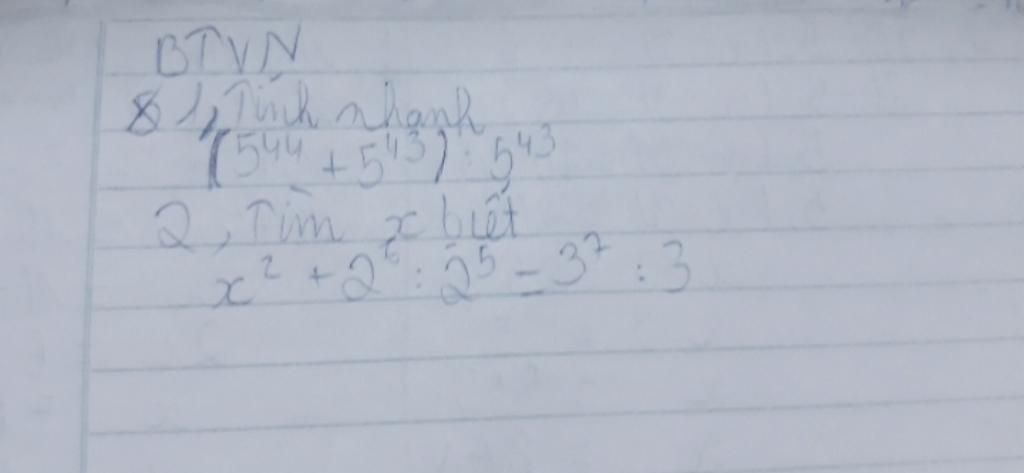 BTVN
1, Tính nhanh
(5⁴⁴ + 5⁴³) : 5⁴³
2, Tìm x biết
x² + 2⁶ : 2⁵ = 3⁷ : 3